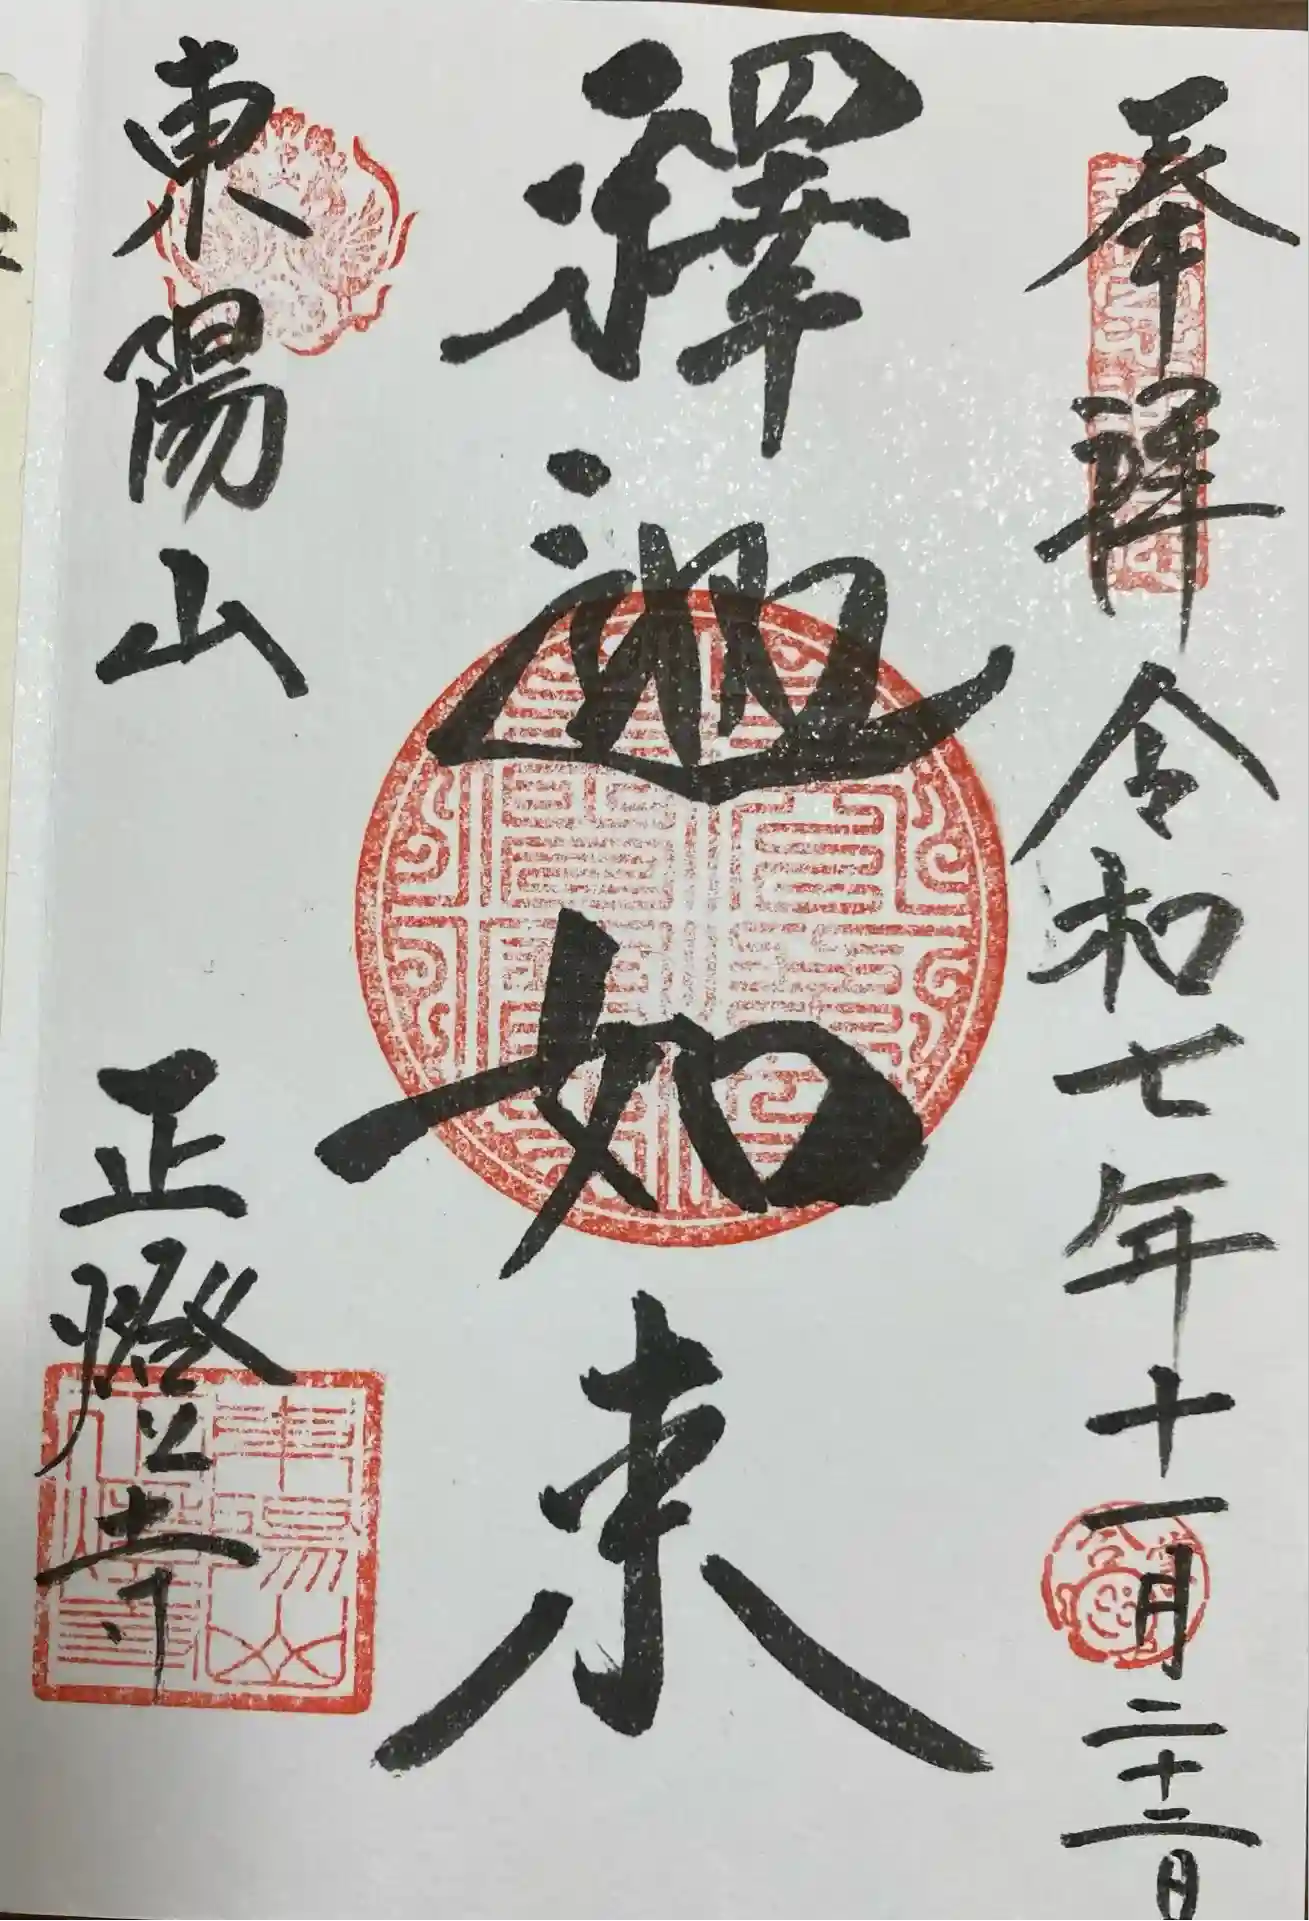 奉拝 令和七年十一月二十三日
釋迦如来
東陽山 正燈寺